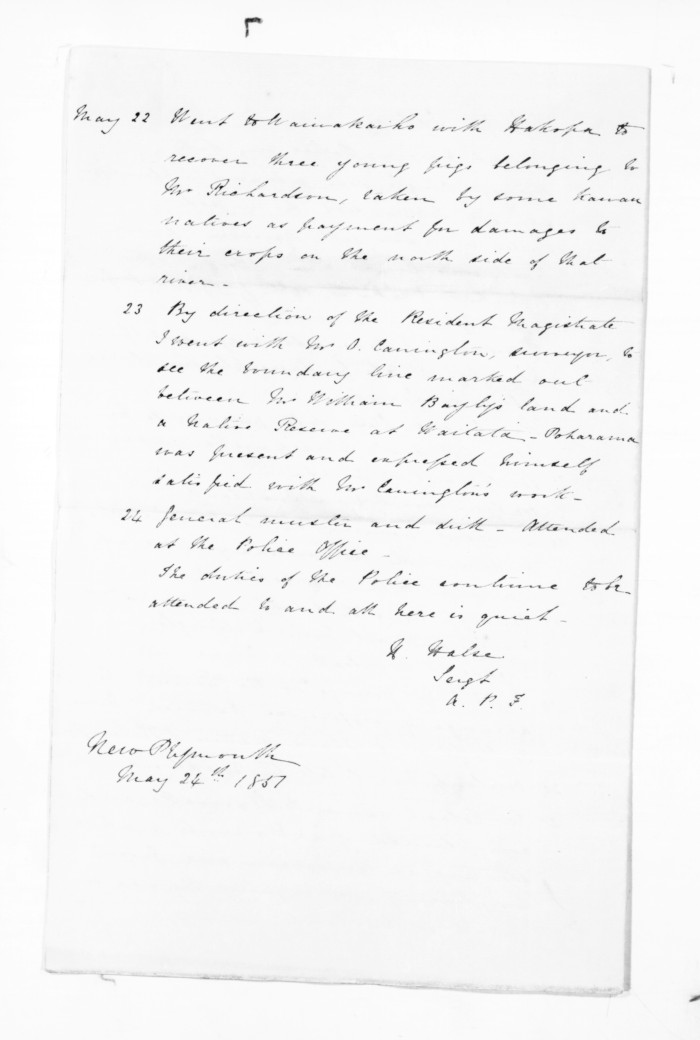 May 22 Went to Waiwakaiho with Hakopa to
recover three young pigs belonging to
Mr Richardson, taken by some
natives as payment for damages to
their crops on the north side of that
river -
23 By direction of the Resident Magistrate
I went with Mr O. Carrington, surveyor, to
see the boundary line marked out
between Mr William Bayly's land and
a Native Reserve at Waitata - Poharama
was present and expressed himself
satisfied with Mr Carrington's work -
24 General muster and drill - Attended
at the Police Office -
The duties of the Police continue to be
attended to and all here is quiet -
H. Halse
Sergt
A. P. F.
New Plymouth
May 24th 1851